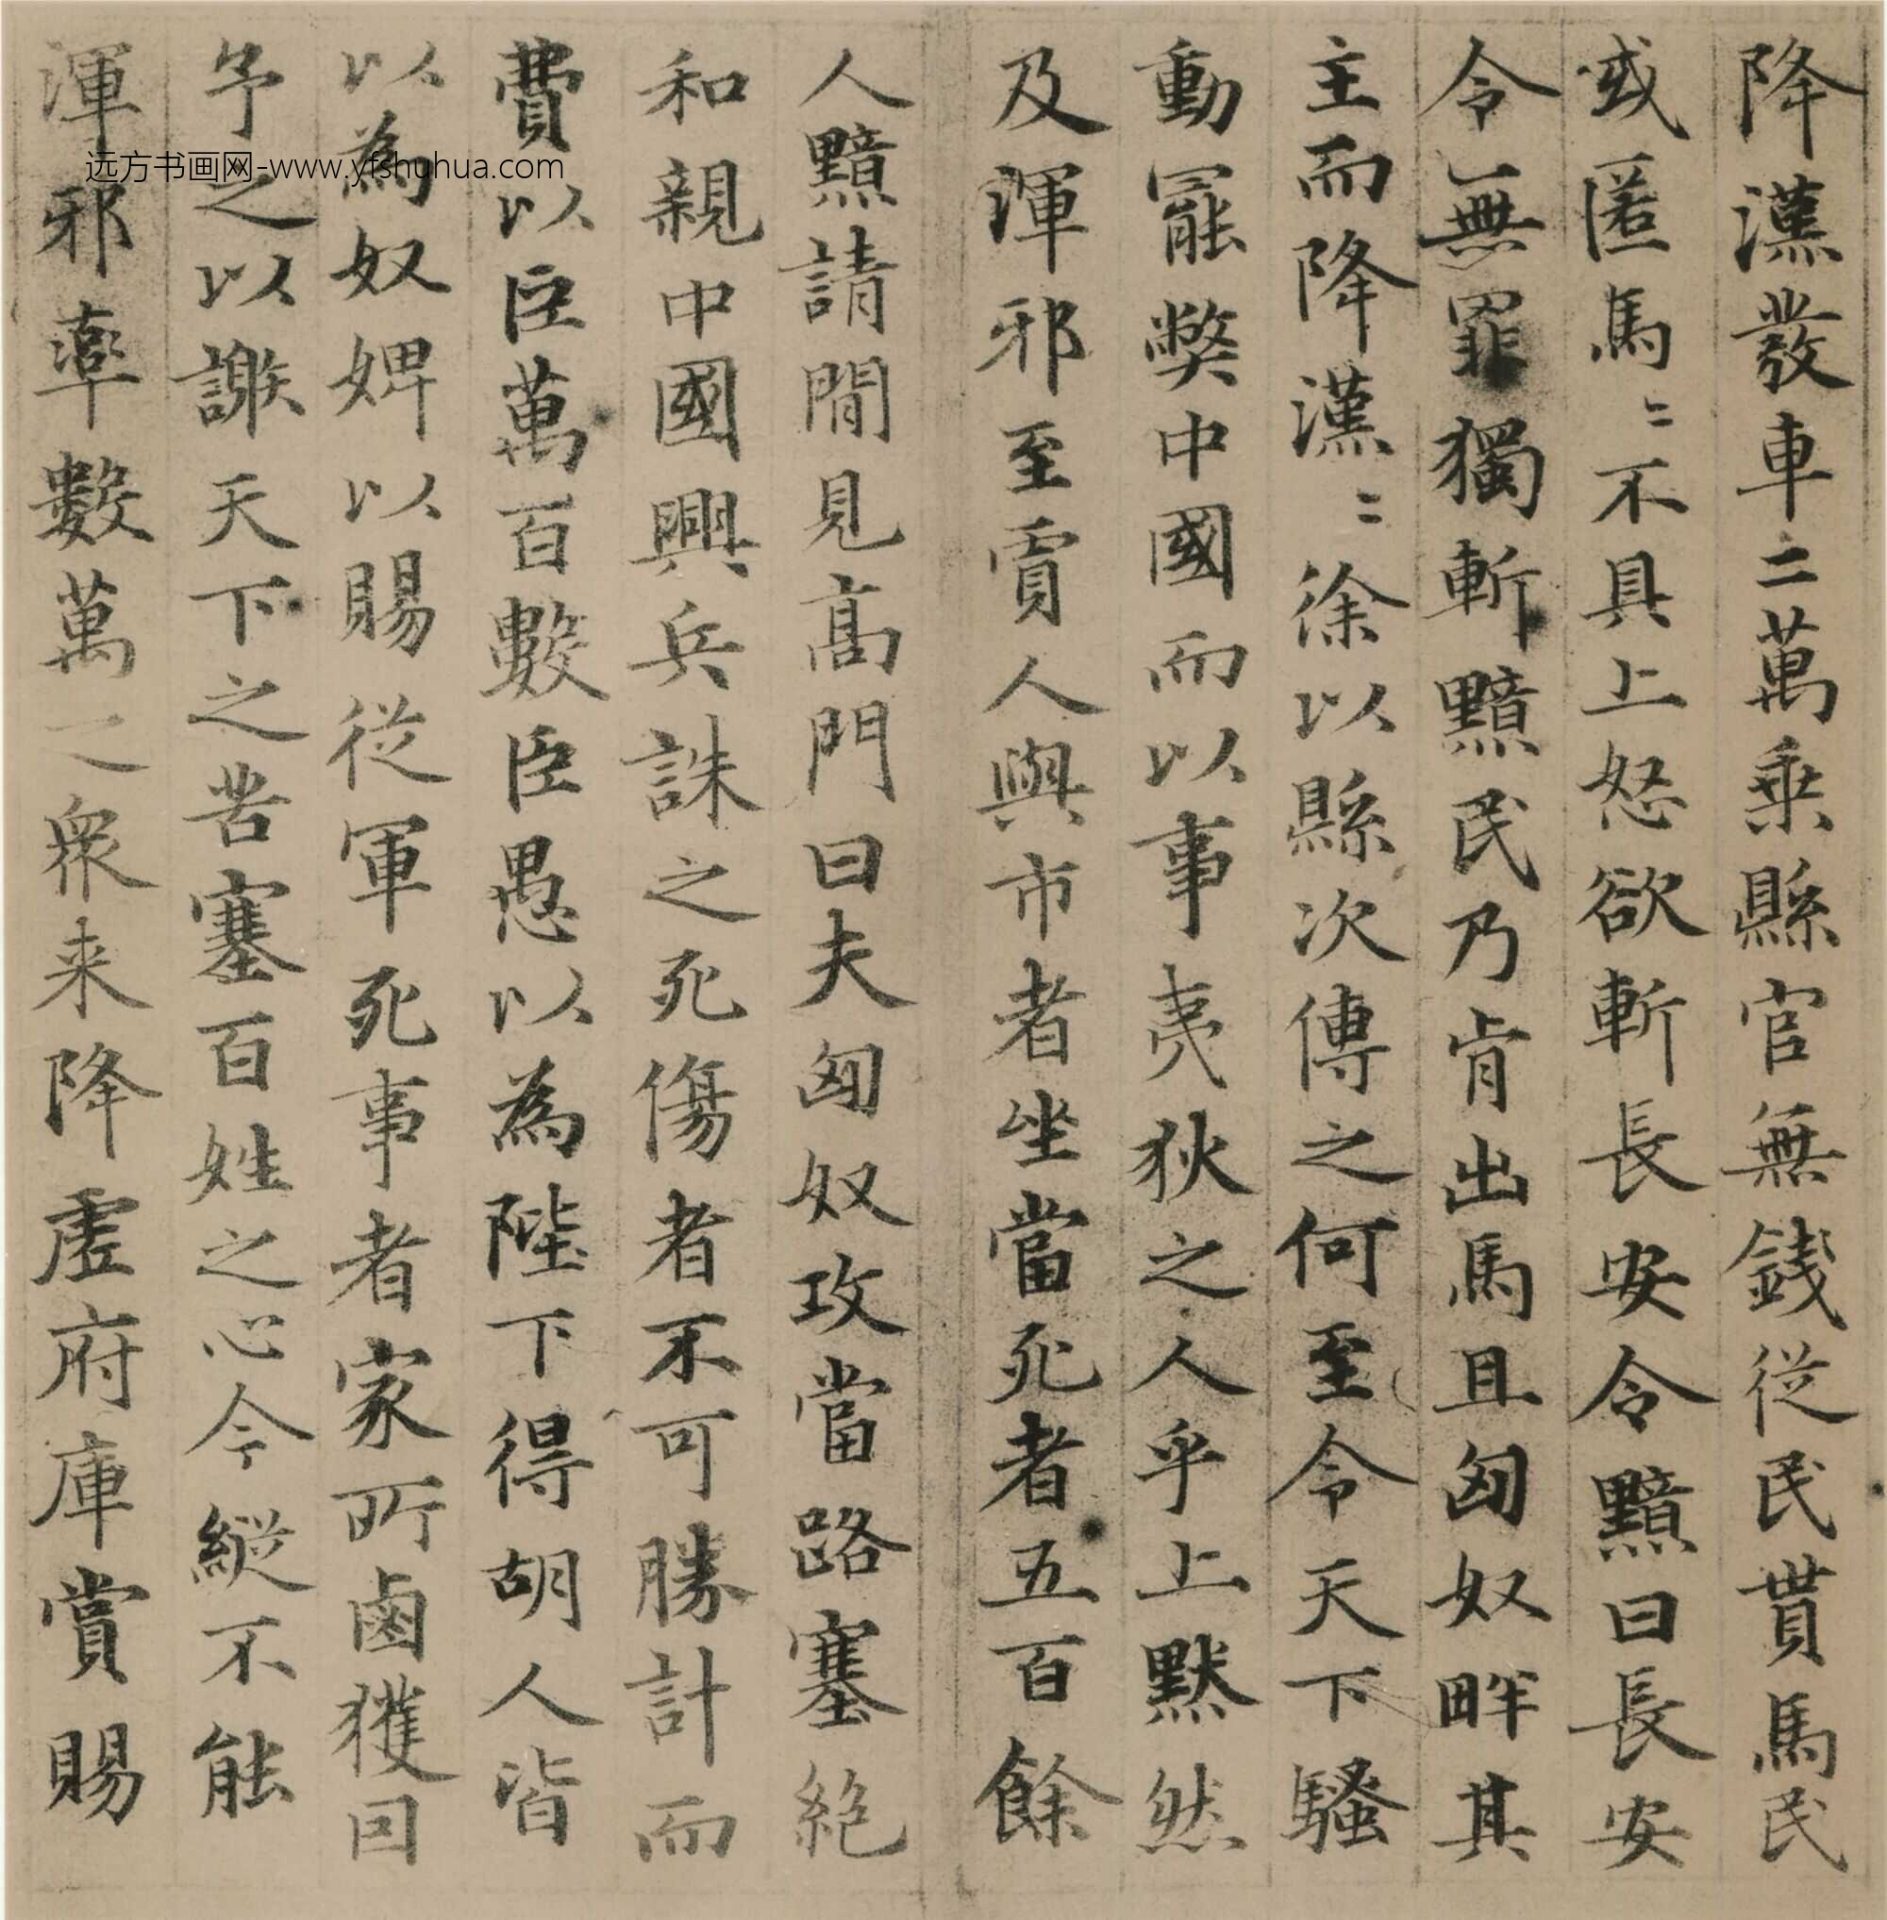 降漢發車二萬乘縣官無錢從民貰馬民
或匿馬〻不具上怒欲斬長安令黯曰長安
令無罪獨斬黯民乃肯出馬且匈奴畔其
主而降漢〻徐以縣次傳之何至令天下騷
動罷弊中國而以事夷狄之人乎上默然
及渾邪至賈人與市者坐當死者五百餘
人黯請間見高門曰夫匈奴攻當路塞絶
和親中國興兵誅之死傷者不可勝計而
費以臣萬百數臣愚以為陛下得胡人皆
以為奴婢以賜從軍死事者家所鹵獲因
予之以謝天下之苦塞百姓之心今縱不能
渾邪率數萬之衆来降虛府庫賞賜
远方书画网-www.yfshuhua.com